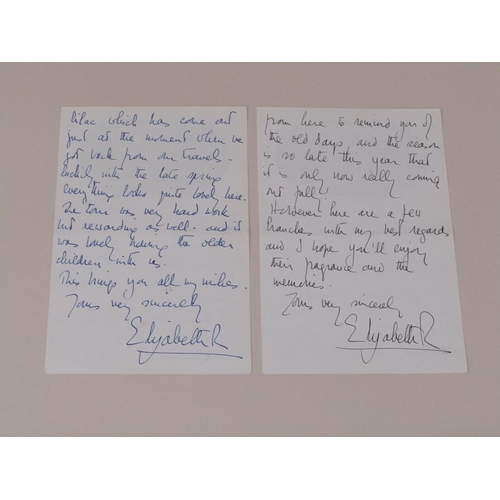 lilac which has come out
just at the moment when we
got back from our travels -
luckily with the late spring
everything looks quite lovely here.
The tour was very hard work
but rewarding as well - and it
was lovely having the older
children with us.
This brings you all my wishes.
Yours very sincerely
Elizabeth R
from here to remind you of
the old days, and the season
is so late this year that
it is only now really coming
out fully!
However here are a few
branches with my best regards
and I hope you'll enjoy
their fragrance and the
memories.
Yours very sincerely
Elizabeth R